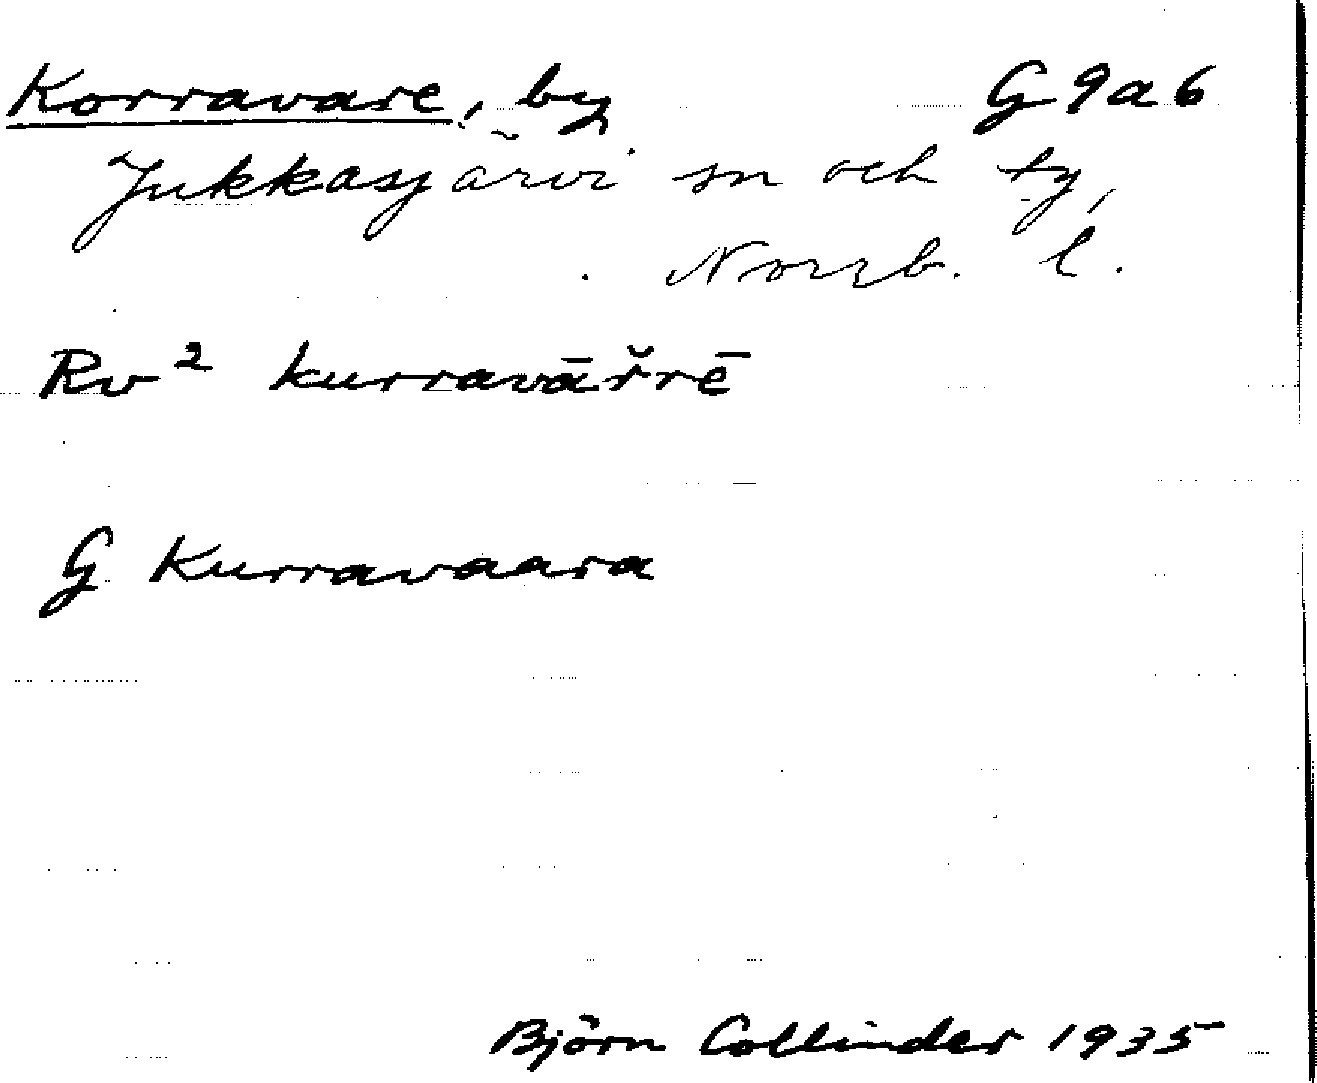 Korravare, by G 9 a 6
Jukkasjärvi sn och ty,
Norrb. l.
Rv² kurravāřrē
G Kurravaara
Björn Collinder 1935